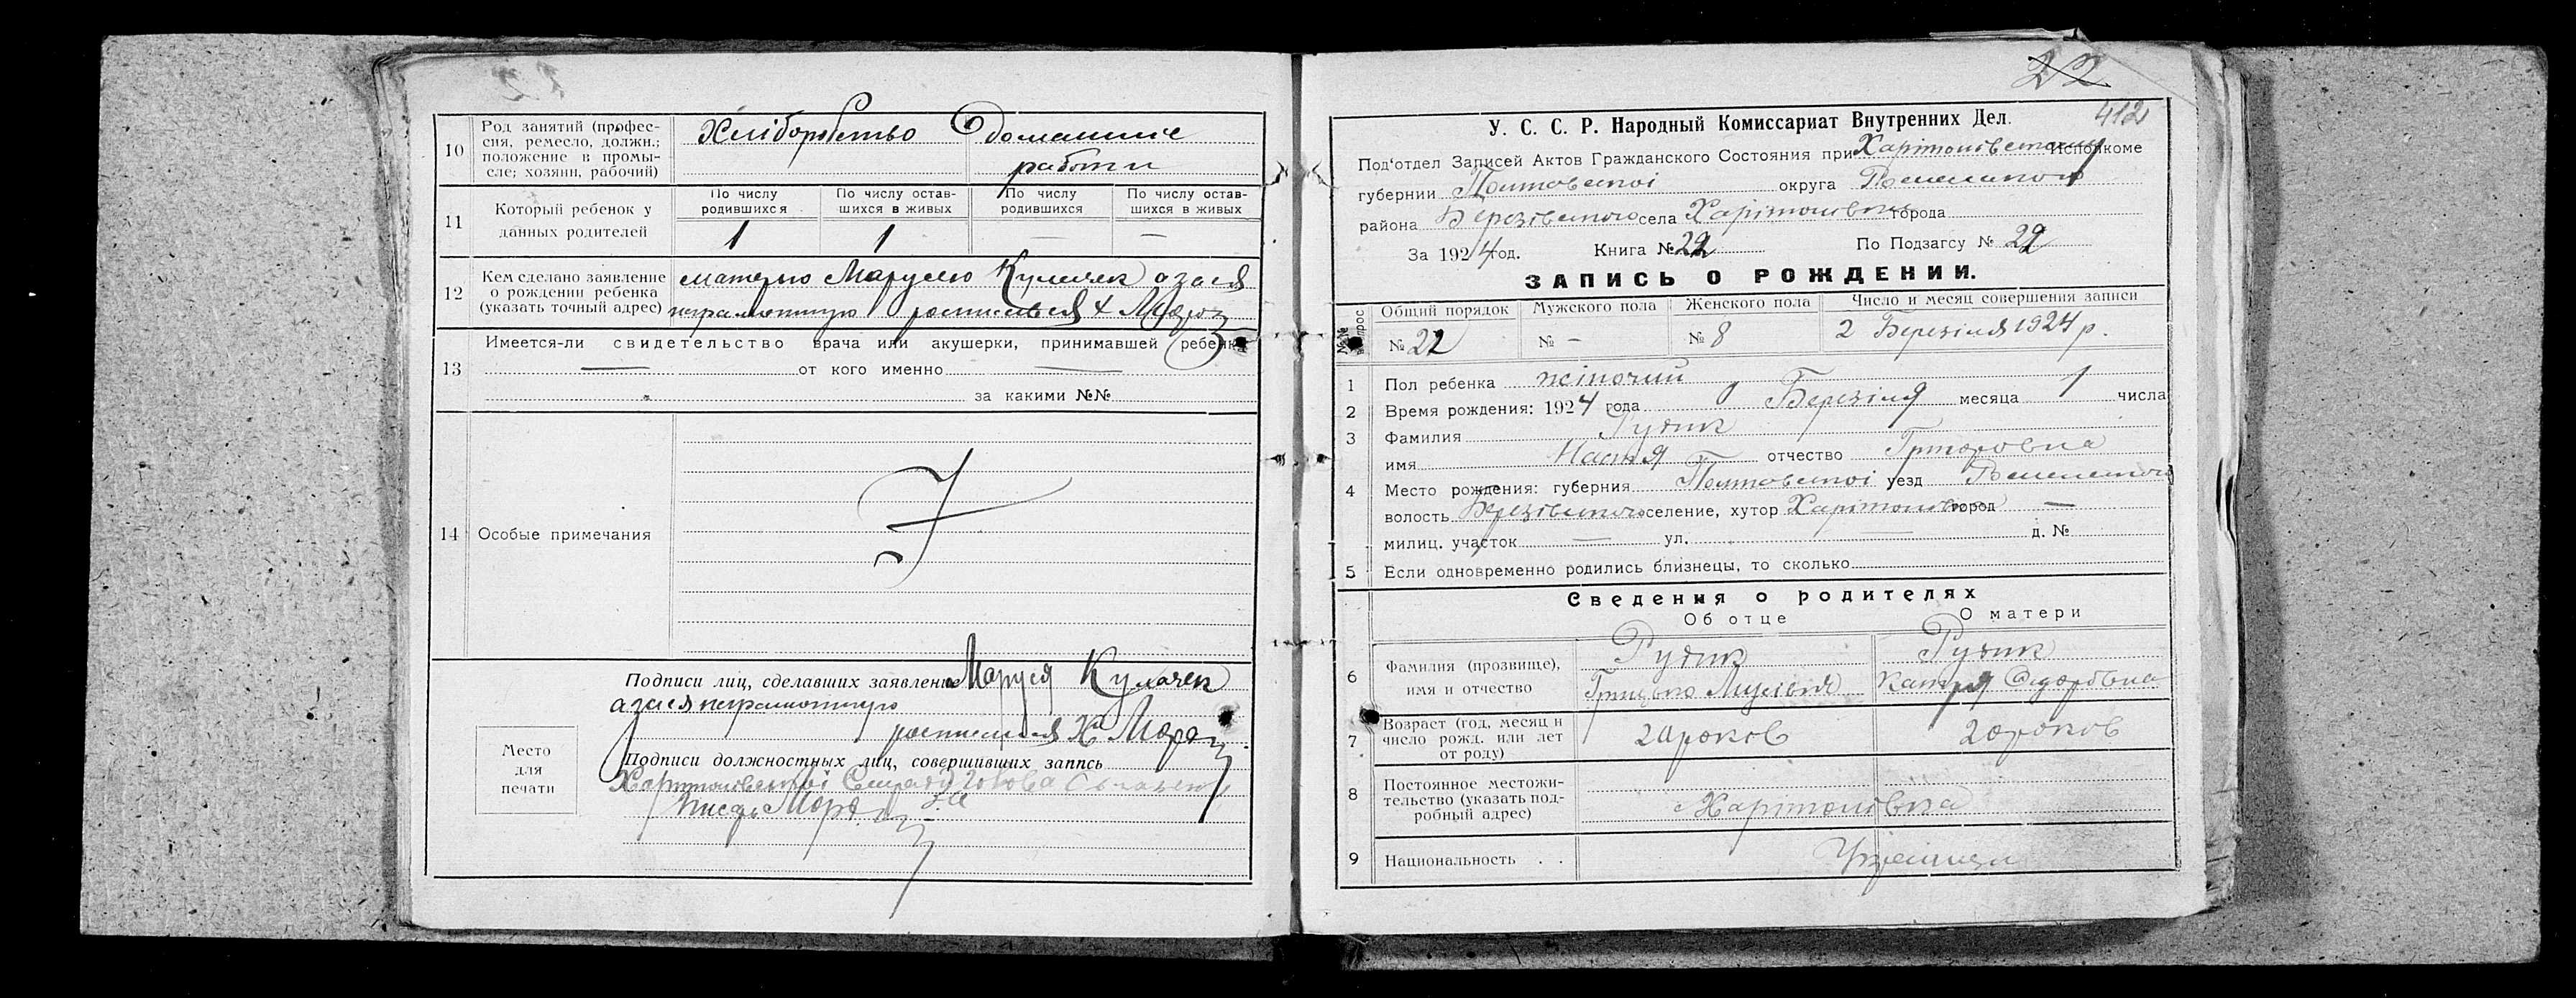 10 Род занятий (профес-
сия, ремесло, должн.;
положение в промы-
сле; хозяин, рабочий)
Хліборобство Домашние
работи
11 Который ребенок у
данных родителей
По числу
родившихся
По числу остав-
шихся в живых
По числу
родившихся
По числу остав-
шихся в живых
1 1 — —
12 Кем сделано заявление
о рождении ребенка
(указать точный адрес)
матерью Марусею азася
неграмотную росписався Мороз
13 Имеется-ли свидетельство врача или акушерки, принимавшей ребенка
— от кого именно —
за какими №№
14 Особые примечания
Подписи лиц, сделавших заявление Маруся Кулачек
азася неграмотную
росписался Мороз
Место
для
печати
Подписи должностных лиц, совершивших запись
Харітоновської Сільради Голова
Писарь Мороз
22
412
У. С. С. Р. Народный Комиссариат Внутренних Дел.
Под'отдел Записей Актов Гражданского Состояния при Харітонівском Исполкоме
губернии Полтавської округа
района Березівського села Харітонівка города
За 1924 год. Книга № 22 По Подзагсу № 22
ЗАПИСЬ О РОЖДЕНИИ.
Общий порядок Мужского пола Женского пола Число и месяц совершения записи
№ 22 № — № 8 2 Березіля 1924 р.
1 Пол ребенка жіночий
2 Время рождения: 1924 года Березіля месяца 1 числа
3 Фамилия Рудик
имя Настя отчество Григоровна
4 Место рождения: губерния Полтавської уезд
волость Березівського селение, хутор Харітонівка город —
милиц. участок — ул. — д. №
5 Если одновременно родились близнецы, то сколько
Сведения о родителях
Об отце О матери
6 Фамилия (прозвище),
имя и отчество
Рудик Рудик
Грицько Катря Сидоровна
7 Возраст (год, месяц и
число рожд. или лет
от роду)
20 роков 20 роков
8 Постоянное местожи-
тельство (указать под-
робный адрес)
Харітонівка
9 Национальность . .
Українци